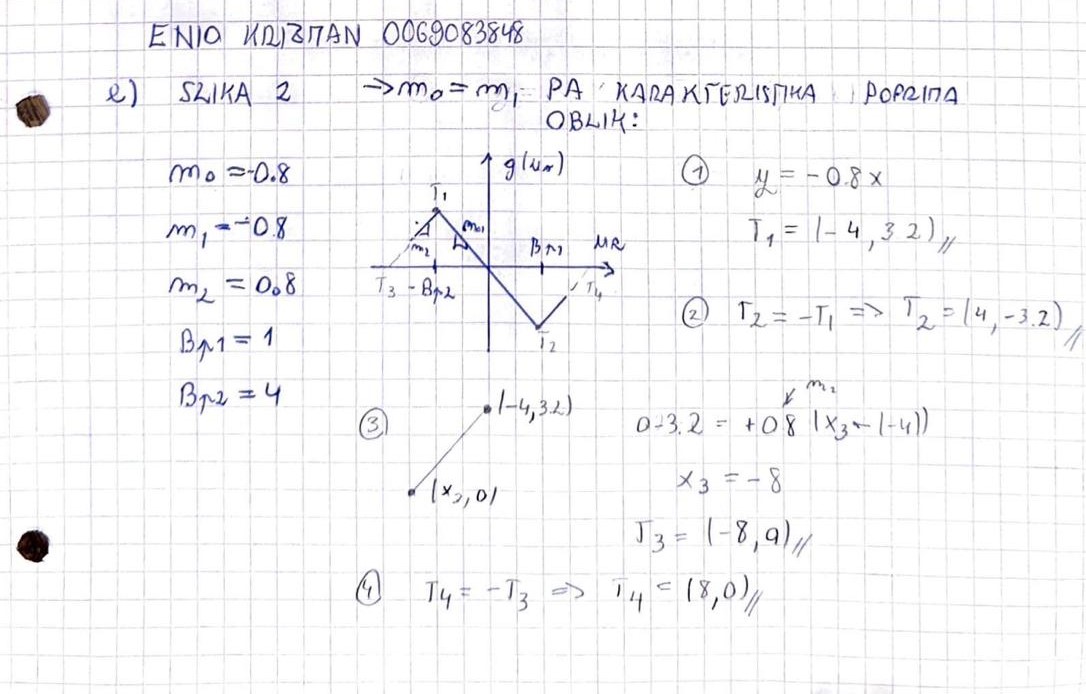 ENIO KRIZMAN 0069083848
e) SLIKA 2 → m₀ = m₁ PA KARAKTERISTIKA POPRIMA
OBLIK:
m₀ = -0.8
m₁ = -0.8
m₂ = 0.8
Bp1 = 1
Bp2 = 4
g(uR)
T₁
m₂
m₀₁
Bp2
UR
T₃
-Bp2
T₄
T₂
① y = -0.8x
T₁ = (-4, 3.2)//
② T₂ = -T₁ => T₂ = (4, -3.2)//
③ (-4, 3.2)
(x₃, 0)
m₂
0-3.2 = +0.8 (x₃ - (-4))
x₃ = -8
T₃ = (-8, 0)//
④ T₄ = -T₃ => T₄ = (8, 0)//